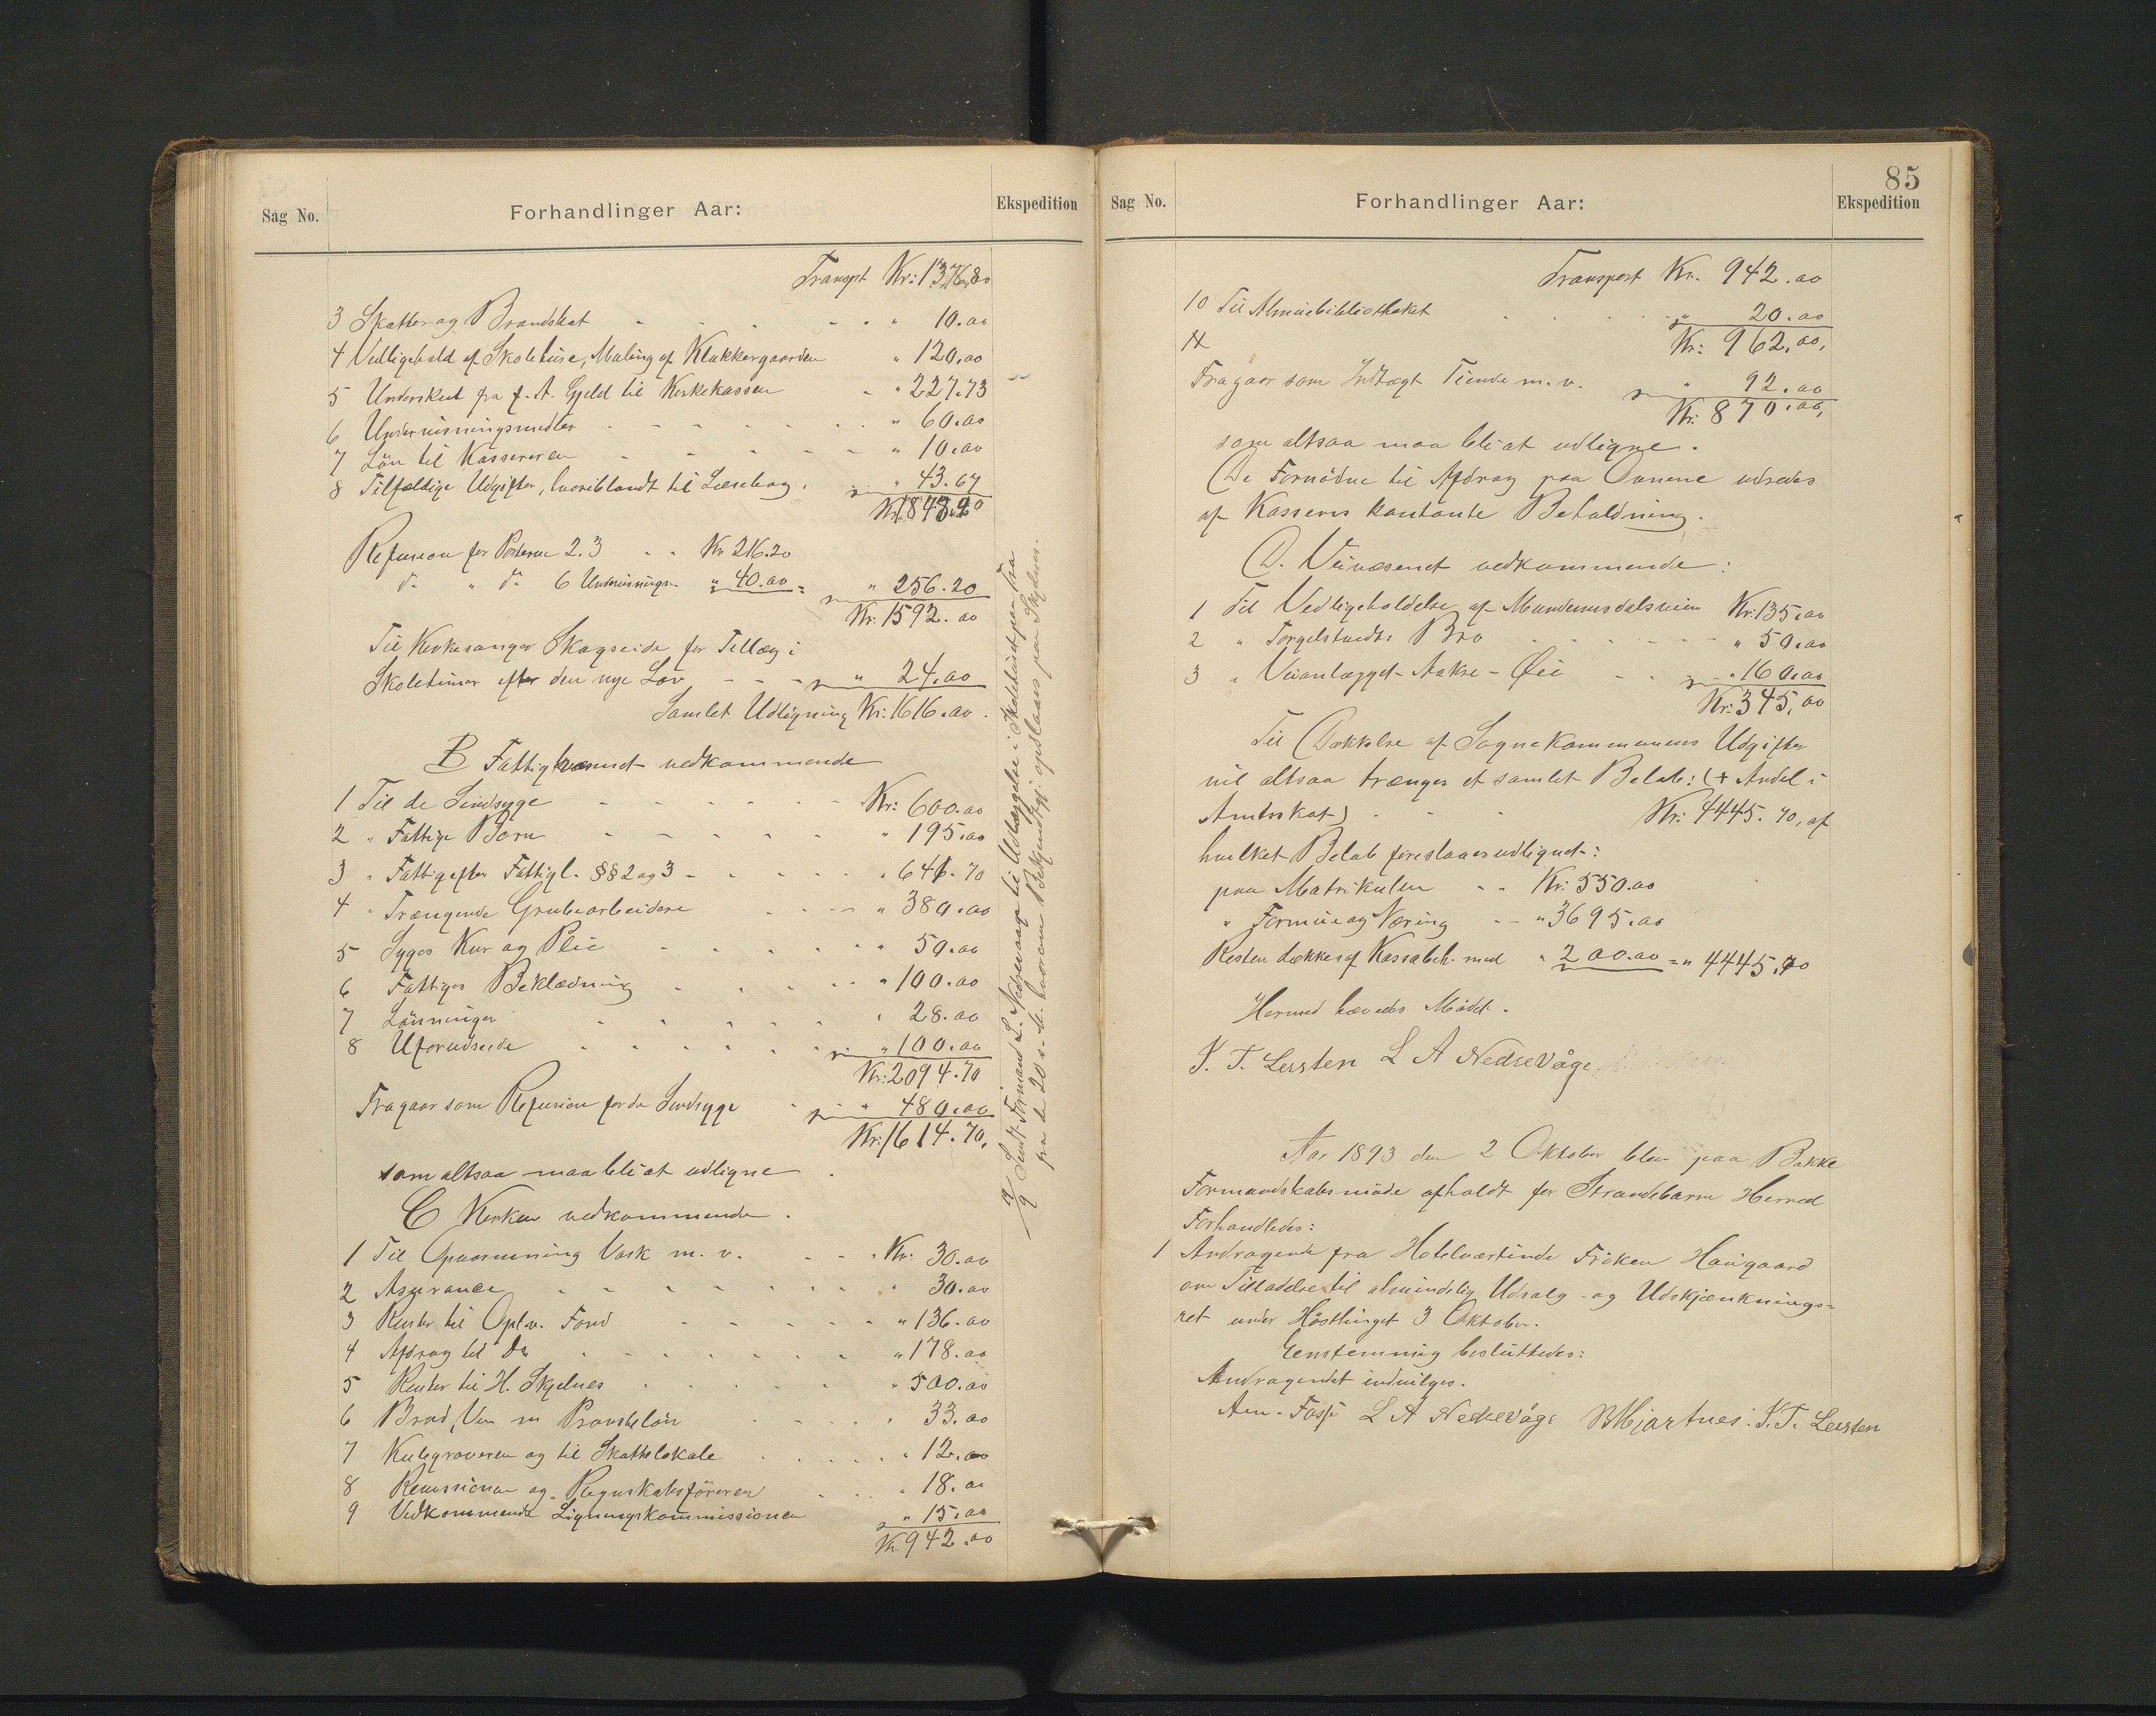 Sag No.
Forhandlinger Aar:
Ekspedition
Transpt Kr: 1376,80
3 Skatter og Brandskat " 10.00
4 Vedligehald af Skolehuse, Maling af Klokkergaarden " 120.00
5 Underskud fra f. A. Gjeld til Kirkekassen " 227.73
6 Undervisningsmidler " 60.00
7 Løn til Kassereren " 10.00
8 Tilfældige Udgifter, hvoriblandt til " 43.67
Kr. 1848.20
Refusion for Posterne 2.3 Kr 216.20
do " do 6 Undervisningsm. " 40.00 = " 256.20
Kr. 1592.00
Til Kirkesanger Skogseide for Tillæg i
Skoletimer efter den nye Lov " 24.00
Samlet Udligning Kr: 1616.00.
B Fattigvæsenet vedkommende
1 Til de Sindsyge Kr: 600.00
2 " Fattige Børn " 195.00
3 " Fattige efter Fattigl. §§ 2 og 3 " 641.70
4 " Trængende Grubearbeidere " 380.00
5 Syges Kur og Pleie " 50.00
6 Fattiges Beklædning " 100.00
7 Lønninger " 28.00
8 Uforudseede " 100.00
Kr: 2094.70
Fragaar som Refusion for de Sindsyge " 480.00
Kr: 1614.70.
som altsaa maa bli at udligne.
C Kirken vedkommende.
1 Til Opvarmning Vask m. v. Kr: 30.00
2 Assurance " 30.00
3 Renter til Oplv. Fond " 136.00
4 Afdrag til Do " 178.00
5 Renter til H. Skjelnes " 500.00
6 Brød, Vin m Provsteløn " 33.00
7 Kulegraveren og til Skattelokale " 12.00
8 Revisionen og Regnskabsføreren " 18.00
9 Vedkommende Ligningskommissionen " 15.00
Kr. 942.00
19/9 Sendt Formand L. Nedrevaage til Udlæggelse i Skolehuset paa fra
fra de 20 s. M. hvorom Bekjendtgj. opslaaes paa Skjelnes.
85
Sag No.
Forhandlinger Aar:
Ekspedition
Transport Kr. 942.00
10 Til Almuebibliotheket " 20.00
Kr: 962.00.
Fragaar som Indtægt Tiende m. v. " 92.00
Kr: 870.00,
som altsaa maa bli at udligne.
De Fornødne til Afdrag paa Ovnene udredes
af Kassens kontante Beholdning.
D. Veivæsenet vedkommende:
1 Til Vedligeholdelse af Mundheimsdalsveien Kr. 135.00
2 " Torgelstvedts Bro " 50.00
3 " Veianlægget Aakre - Øie " 160.00
Kr: 345,00
Til Dækkelse af Sognekommunens Udgifter
vil altsaa trænges et samlet Beløb: (+ Andel i
Amtsskat) Kr: 4445.70, af
hvilket Beløb foreslaaes udlignet:
paa Matrikulen Kr: 550.00
" Formue og Næring " 3695.00
Resten dækkes af Kassabeh. med " 200.00 = " 4445.70
Hermed hævedes Mødet.
J. T. Leisten L A Nedrevåge
Aar 1893 den 2 Oktober blev paa Bakke
Formandskabsmøde afholdt for Strandebarm Herred
Forhandledes:
1 Andragende fra Hotelværtinde Frøken Haugaard
om Tilladelse til almindelig Udsalg- og Udskjænknings=
ret under Høsthinget 3 Oktober.
Eenstemmig besluttedes:
Andragendet indvilges.
L A Nedrevåge J. T. Leisten